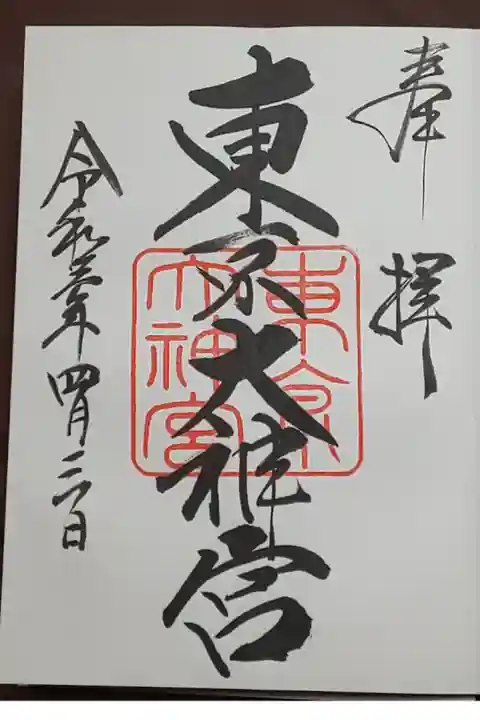 奉拝
東京大神宮
東京
大神宮
令和三年四月三日